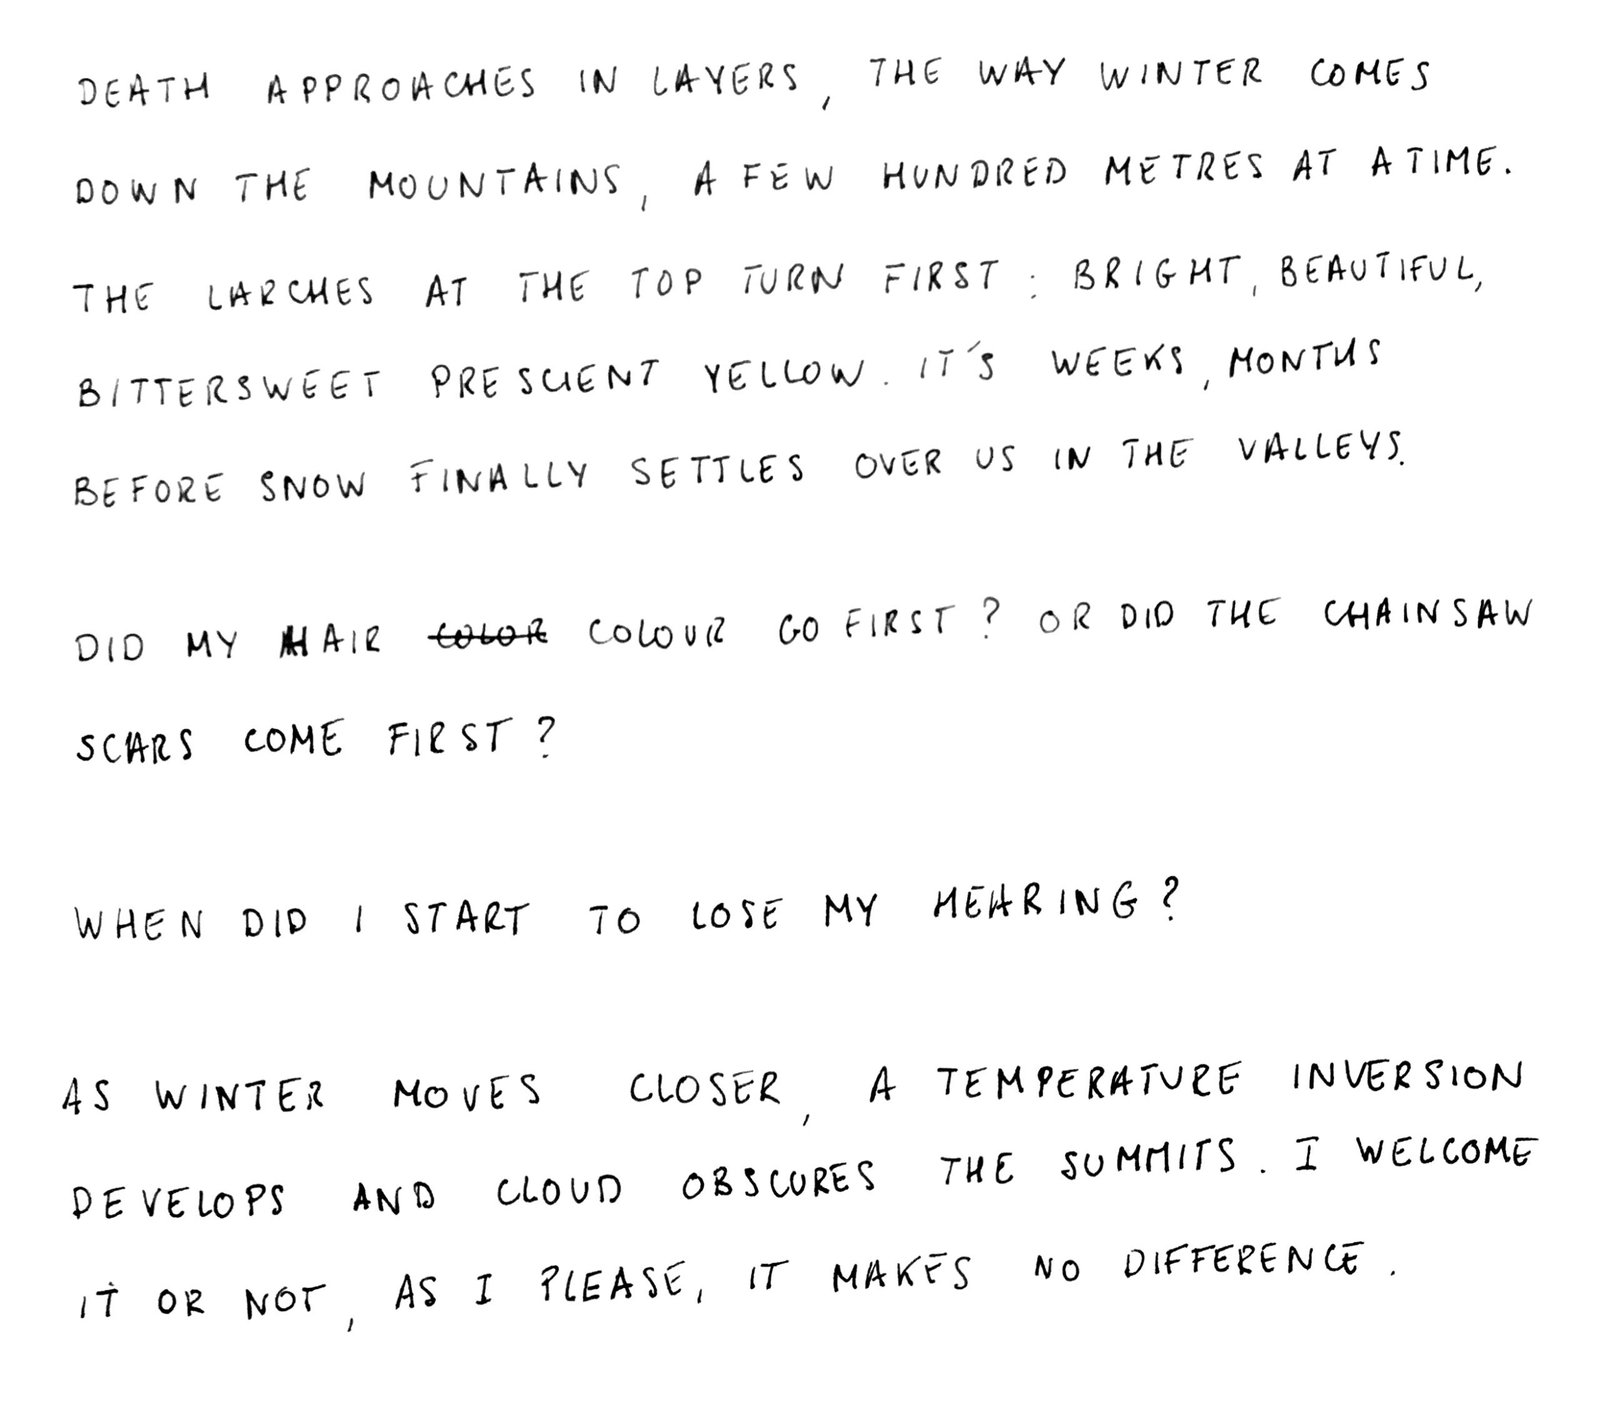 DEATH APPROACHES IN LAYERS, THE WAY WINTER COMES
DOWN THE MOUNTAINS, A FEW HUNDRED METRES AT A TIME.
THE LARCHES AT THE TOP TURN FIRST: BRIGHT, BEAUTIFUL,
BITTERSWEET PRESCIENT YELLOW. IT'S WEEKS, MONTHS
BEFORE SNOW FINALLY SETTLES OVER US IN THE VALLEYS.
DID MY HAIR COLOR COLOUR GO FIRST? OR DID THE CHAINSAW
SCARS COME FIRST?
WHEN DID I START TO LOSE MY HEARING?
AS WINTER MOVES CLOSER, A TEMPERATURE INVERSION
DEVELOPS AND CLOUD OBSCURES THE SUMMITS. I WELCOME
IT OR NOT, AS I PLEASE, IT MAKES NO DIFFERENCE.